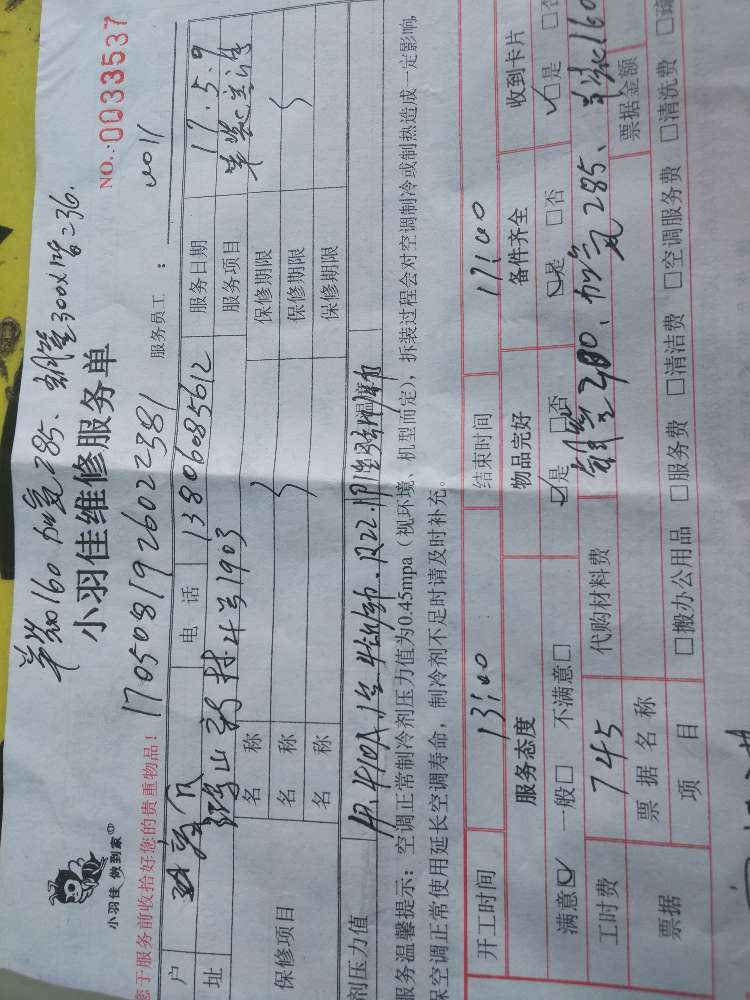 单装160 加氟285、铜管300×12%=36.
小羽佳 做到家
小羽佳维修服务单
NO.:0033537
您于服务前收拾好您的贵重物品!
1705081926022381
服务员工:
户
电 话
13806085612
服务日期
17.5.9
址
新村4号1903
服务项目
保修项目
名 称
保修期限
名 称
保修期限
名 称
保修期限
剂压力值
服务温馨提示:空调正常制冷剂压力值为0.45mpa(视环境、机型而定),拆装过程会对空调制冷或制热造成一定影响,
保空调正常使用延长空调寿命,制冷剂不足时请及时补充。
开工时间
13:00
结束时间
17:00
服务态度
物品完好
备件齐全
收到卡片
满意☑ 一般□ 不满意□
☑是 □否
☑是 □否
☑是 □否
工时费
745
代购材料费
铜管300、加氟285、单装160
票据
票据名称
票据金额
项 目
□搬办公用品 □服务费 □清洁费 □空调服务费 □清洗费